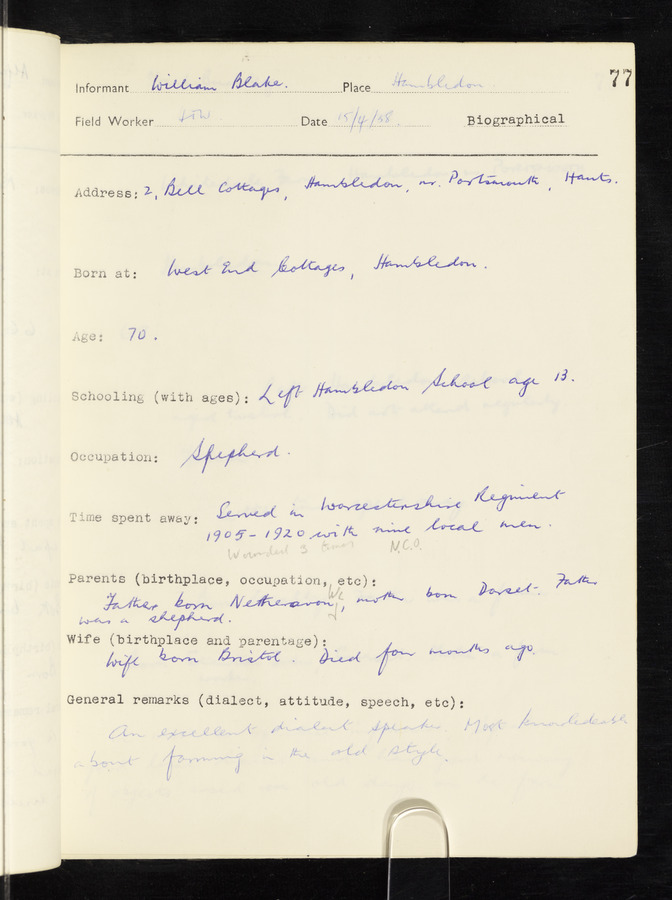 77
Informant William Blake. Place Hambledon
Field Worker Date 15/4/58. Biographical
Address: 2, Bell Cottages, Hambledon, nr. Portsmouth, Hants.
Born at: West End Cottages, Hambledon.
Age: 70.
Schooling (with ages): Left Hambledon School age 13.
Occupation: Shepherd.
Time spent away: Served in Worcestershire Regiment
1905-1920 with nine local men.
Wounded 3 times N.C.O.
Parents (birthplace, occupation, etc):
Father born Netheravon, mother born Dorset. Father
was a shepherd.
Wife (birthplace and parentage):
Wife born Bristol. Died four months ago.
General remarks (dialect, attitude, speech, etc):
An excellent dialect speaker. Most knowledgeable
about farming in the old style.